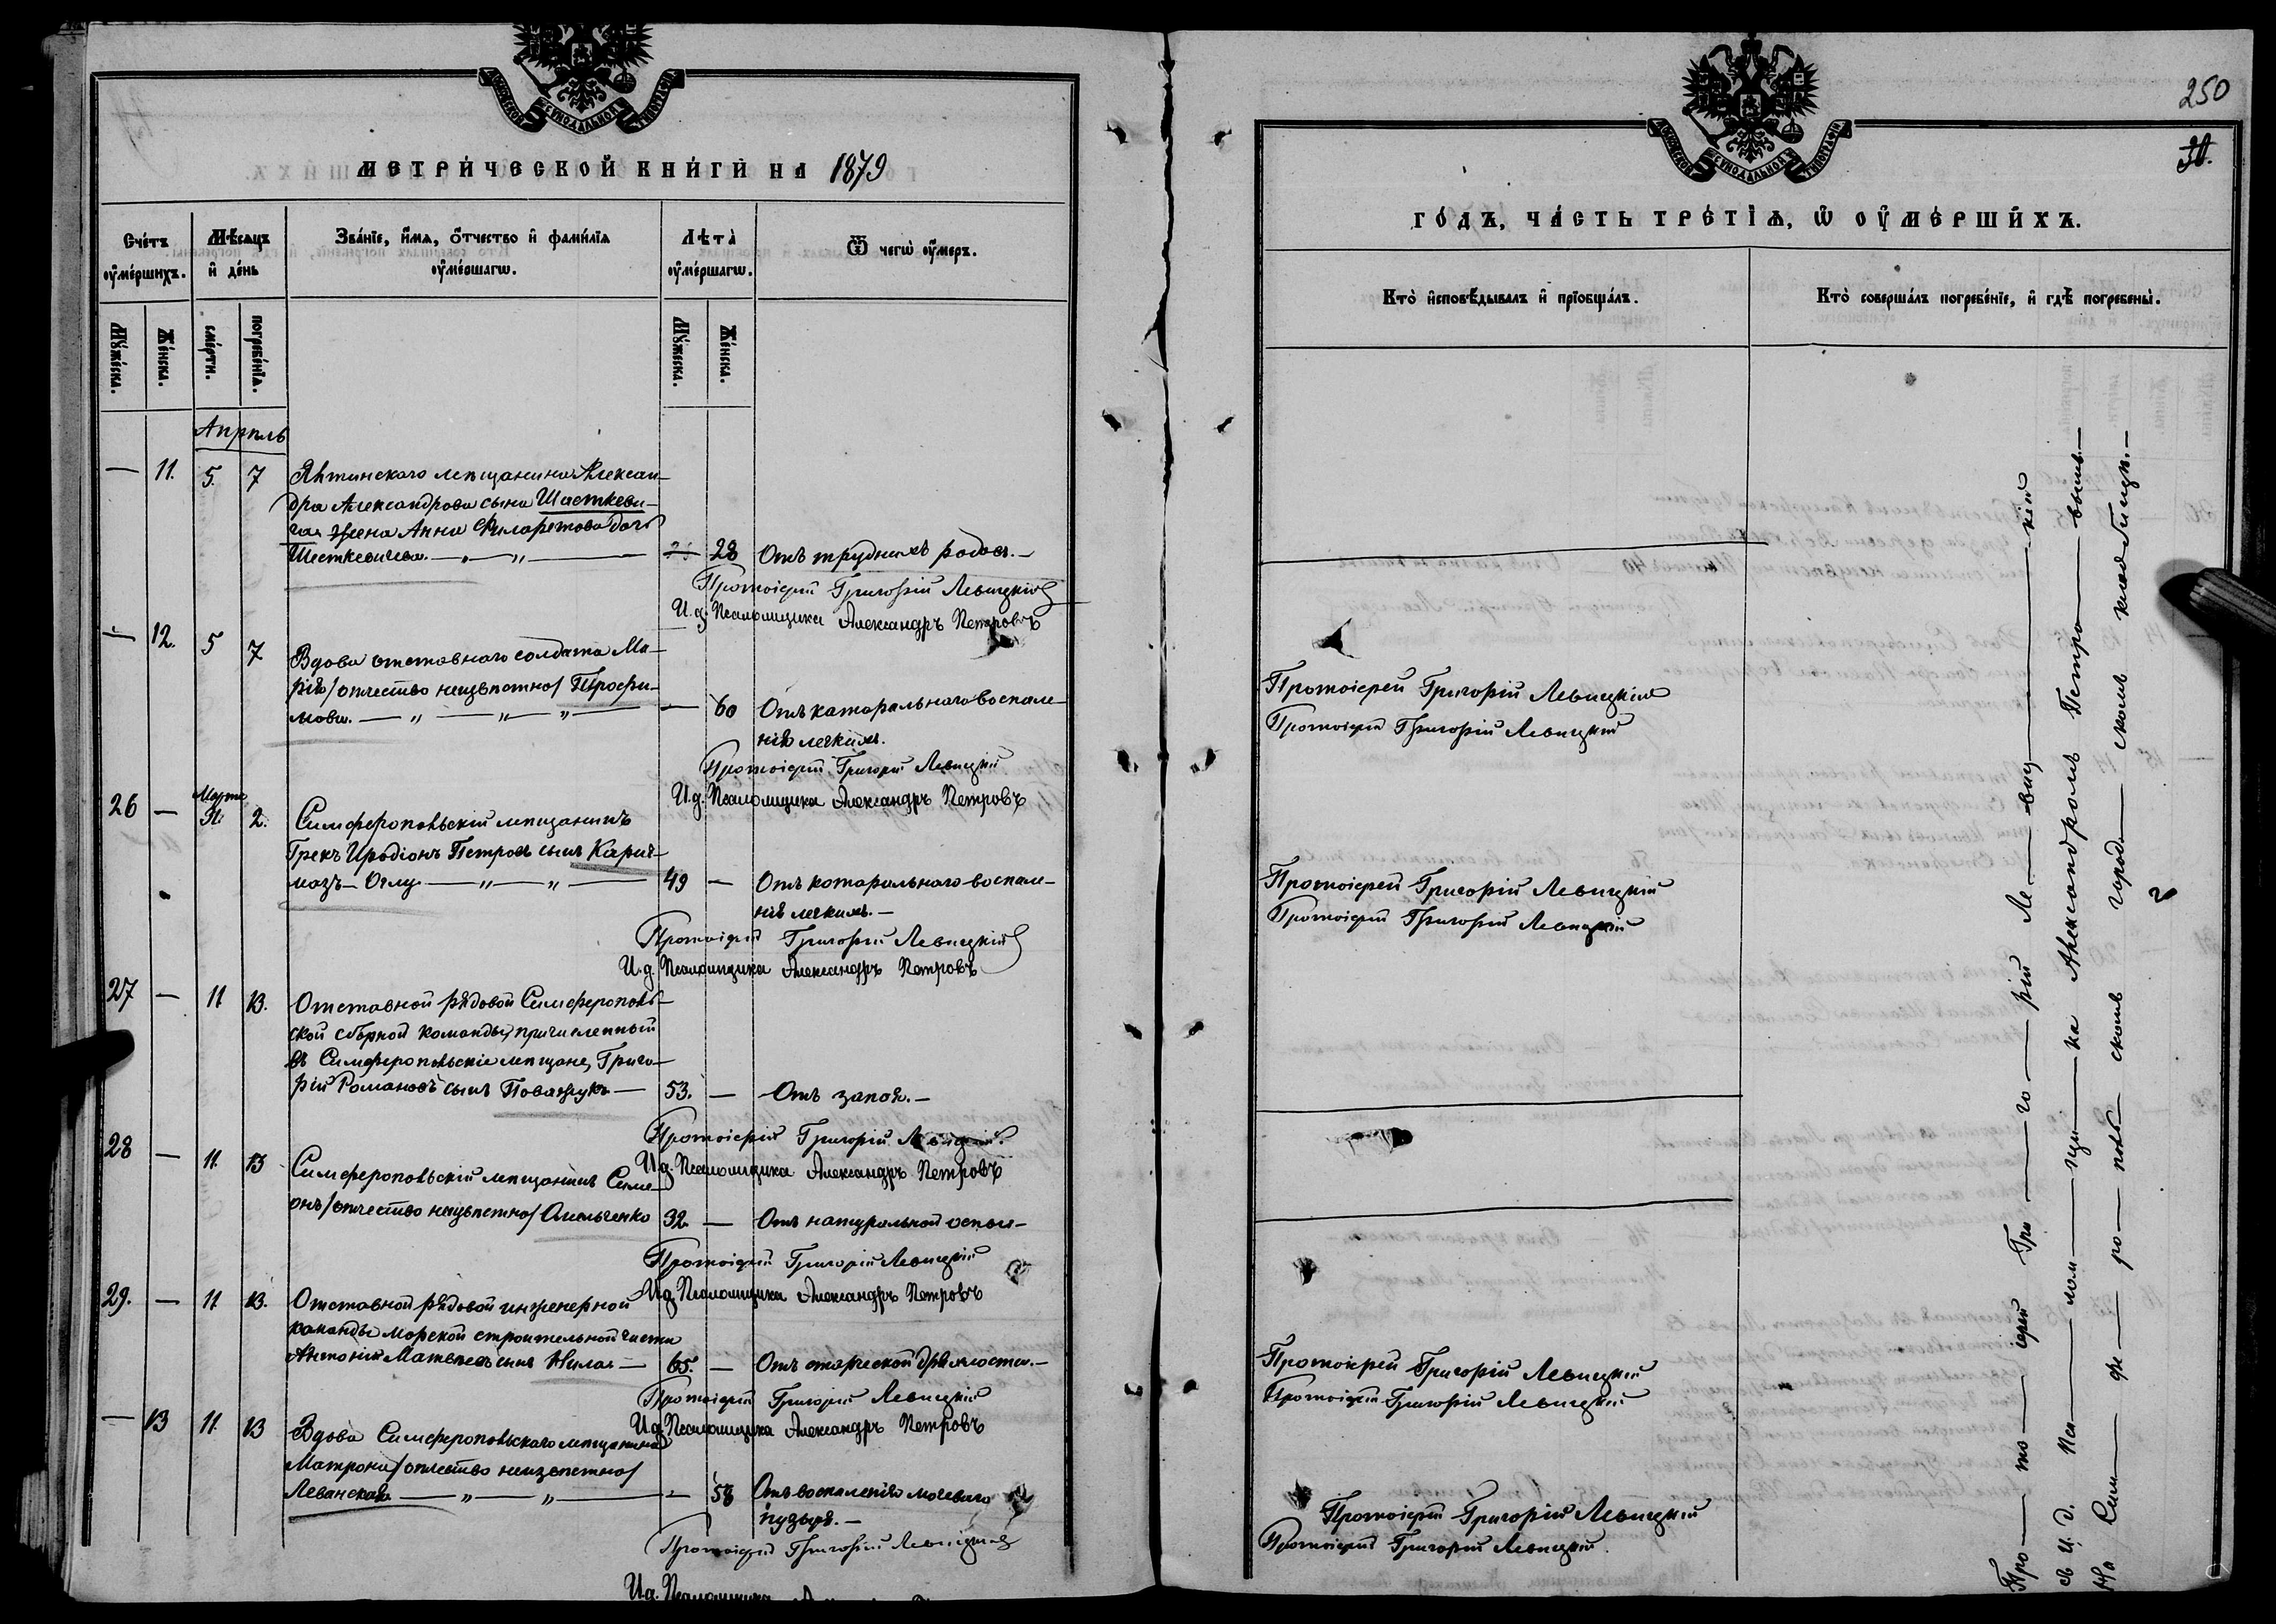 МОСКОВСКОЙ СѴНОДАЛЬНОЙ ТИПОГРАФІИ
МЕТРИ́ЧЕСКОЙ КНИ́ГИ НА 1879
Сче́тъ ᲂу҆ме́ршихъ.
Мѣ́сяцъ и҆ де́нь
Зва́нїе, и҆́мѧ, ѻ҆́тчество и҆ фами́лїѧ ᲂу҆ме́ршагѡ.
Лѣ́та ᲂу҆ме́ршагѡ.
Ѿ чегѡ̀ ᲂу҆́меръ.
Мꙋ́жеска.
Же́нска.
сме́рти.
погребе́нїѧ.
Мꙋ́жеска.
Же́нска.
Апрѣль
— 11. 5. 7 Ялтинскаго мѣщанина Алексан-
дра Александрова сына Шесткеви-
ча жена Анна Филаретова дочь
Шесткевичева. — 28 Отъ трудныхъ родовъ. —
Протоіерей Григорій Левицкій
И. д. Псаломщика Александръ Петровъ
— 12. 5 7 Вдова отставнаго солдата Ма-
рія /отчество неизвѣстно/ Трофи-
мова. — 60 Отъ катаральнаго воспале-
нія легкихъ.
Протоіерей Григорій Левицкій
И. д. Псаломщика Александръ Петровъ
26 — Марта 31 2. Симферопольскій мѣщанинъ
Грекъ Иродіонъ Петровъ сынъ Карач-
мазъ-Оглу — 49 — Отъ катаральнаго воспале-
нія легкихъ. —
Протоіерей Григорій Левицкій
И. д. Псаломщика Александръ Петровъ
27 — 11 13. Отставной рядовой Симферополь-
ской сборной команды, причисленный
въ Симферопольскіе мѣщане, Григо-
рій Романовъ сынъ 53. — Отъ запоя. —
Протоіерей Григорій Левицкій
И. д. Псаломщика Александръ Петровъ
28 — 11 13 Симферопольскій мѣщанинъ Семе-
онъ /отчество неизвѣстно/ Омельченко 32. — Отъ натуральной оспы —
Протоіерей Григорій Левицкій
И. д. Псаломщика Александръ Петровъ
29. — 11 13. Отставной рядовой инженерной
команды морской строительной части
Антоній Матвѣевъ сынъ — 65. — Отъ старческой дряхлости. —
Протоіерей Григорій Левицкій
И. д. Псаломщика Александръ Петровъ
— 13 11. 13 Вдова Симферопольскаго мѣщанина
Матрона /отчество неизвѣстно/
Леванская — 58 Отъ воспаленія мочеваго
пузыря. —
Протоіерей Григорій Левицкій
И. д. Псаломщика
250
МОСКОВСКОЙ СѴНОДАЛЬНОЙ ТИПОГРАФІИ
ГО́ДЪ, ЧА́СТЬ ТРЕ́ТЇѦ, Ѡ҆ ᲂУ҆МЕ́РШИХЪ.
Кто̀ и҆сповѣ́дывалъ и҆ прїѡбща́лъ.
Кто̀ соверша́лъ погребе́нїе, и҆ гдѣ̀ погребены̀.
Протоіерей Григорій Левицкій
Протоіерей Григорій Левицкій
Протоіерей Григорій Левицкій
Протоіерей Григорій Левицкій
Протоіерей Григорій Левицкій
Протоіерей Григорій Левицкій
Протоіерей Григорій Левицкій
Протоіерей Григорій Левицкій
Про — то — іерей Гри — го — рій Ле — виц — кій
съ И. д. Пса — лом — щи — ка Александромъ Петро — вымъ. —
На Сим — фе — ро — поль — скомъ город — скомъ кладбищѣ. —